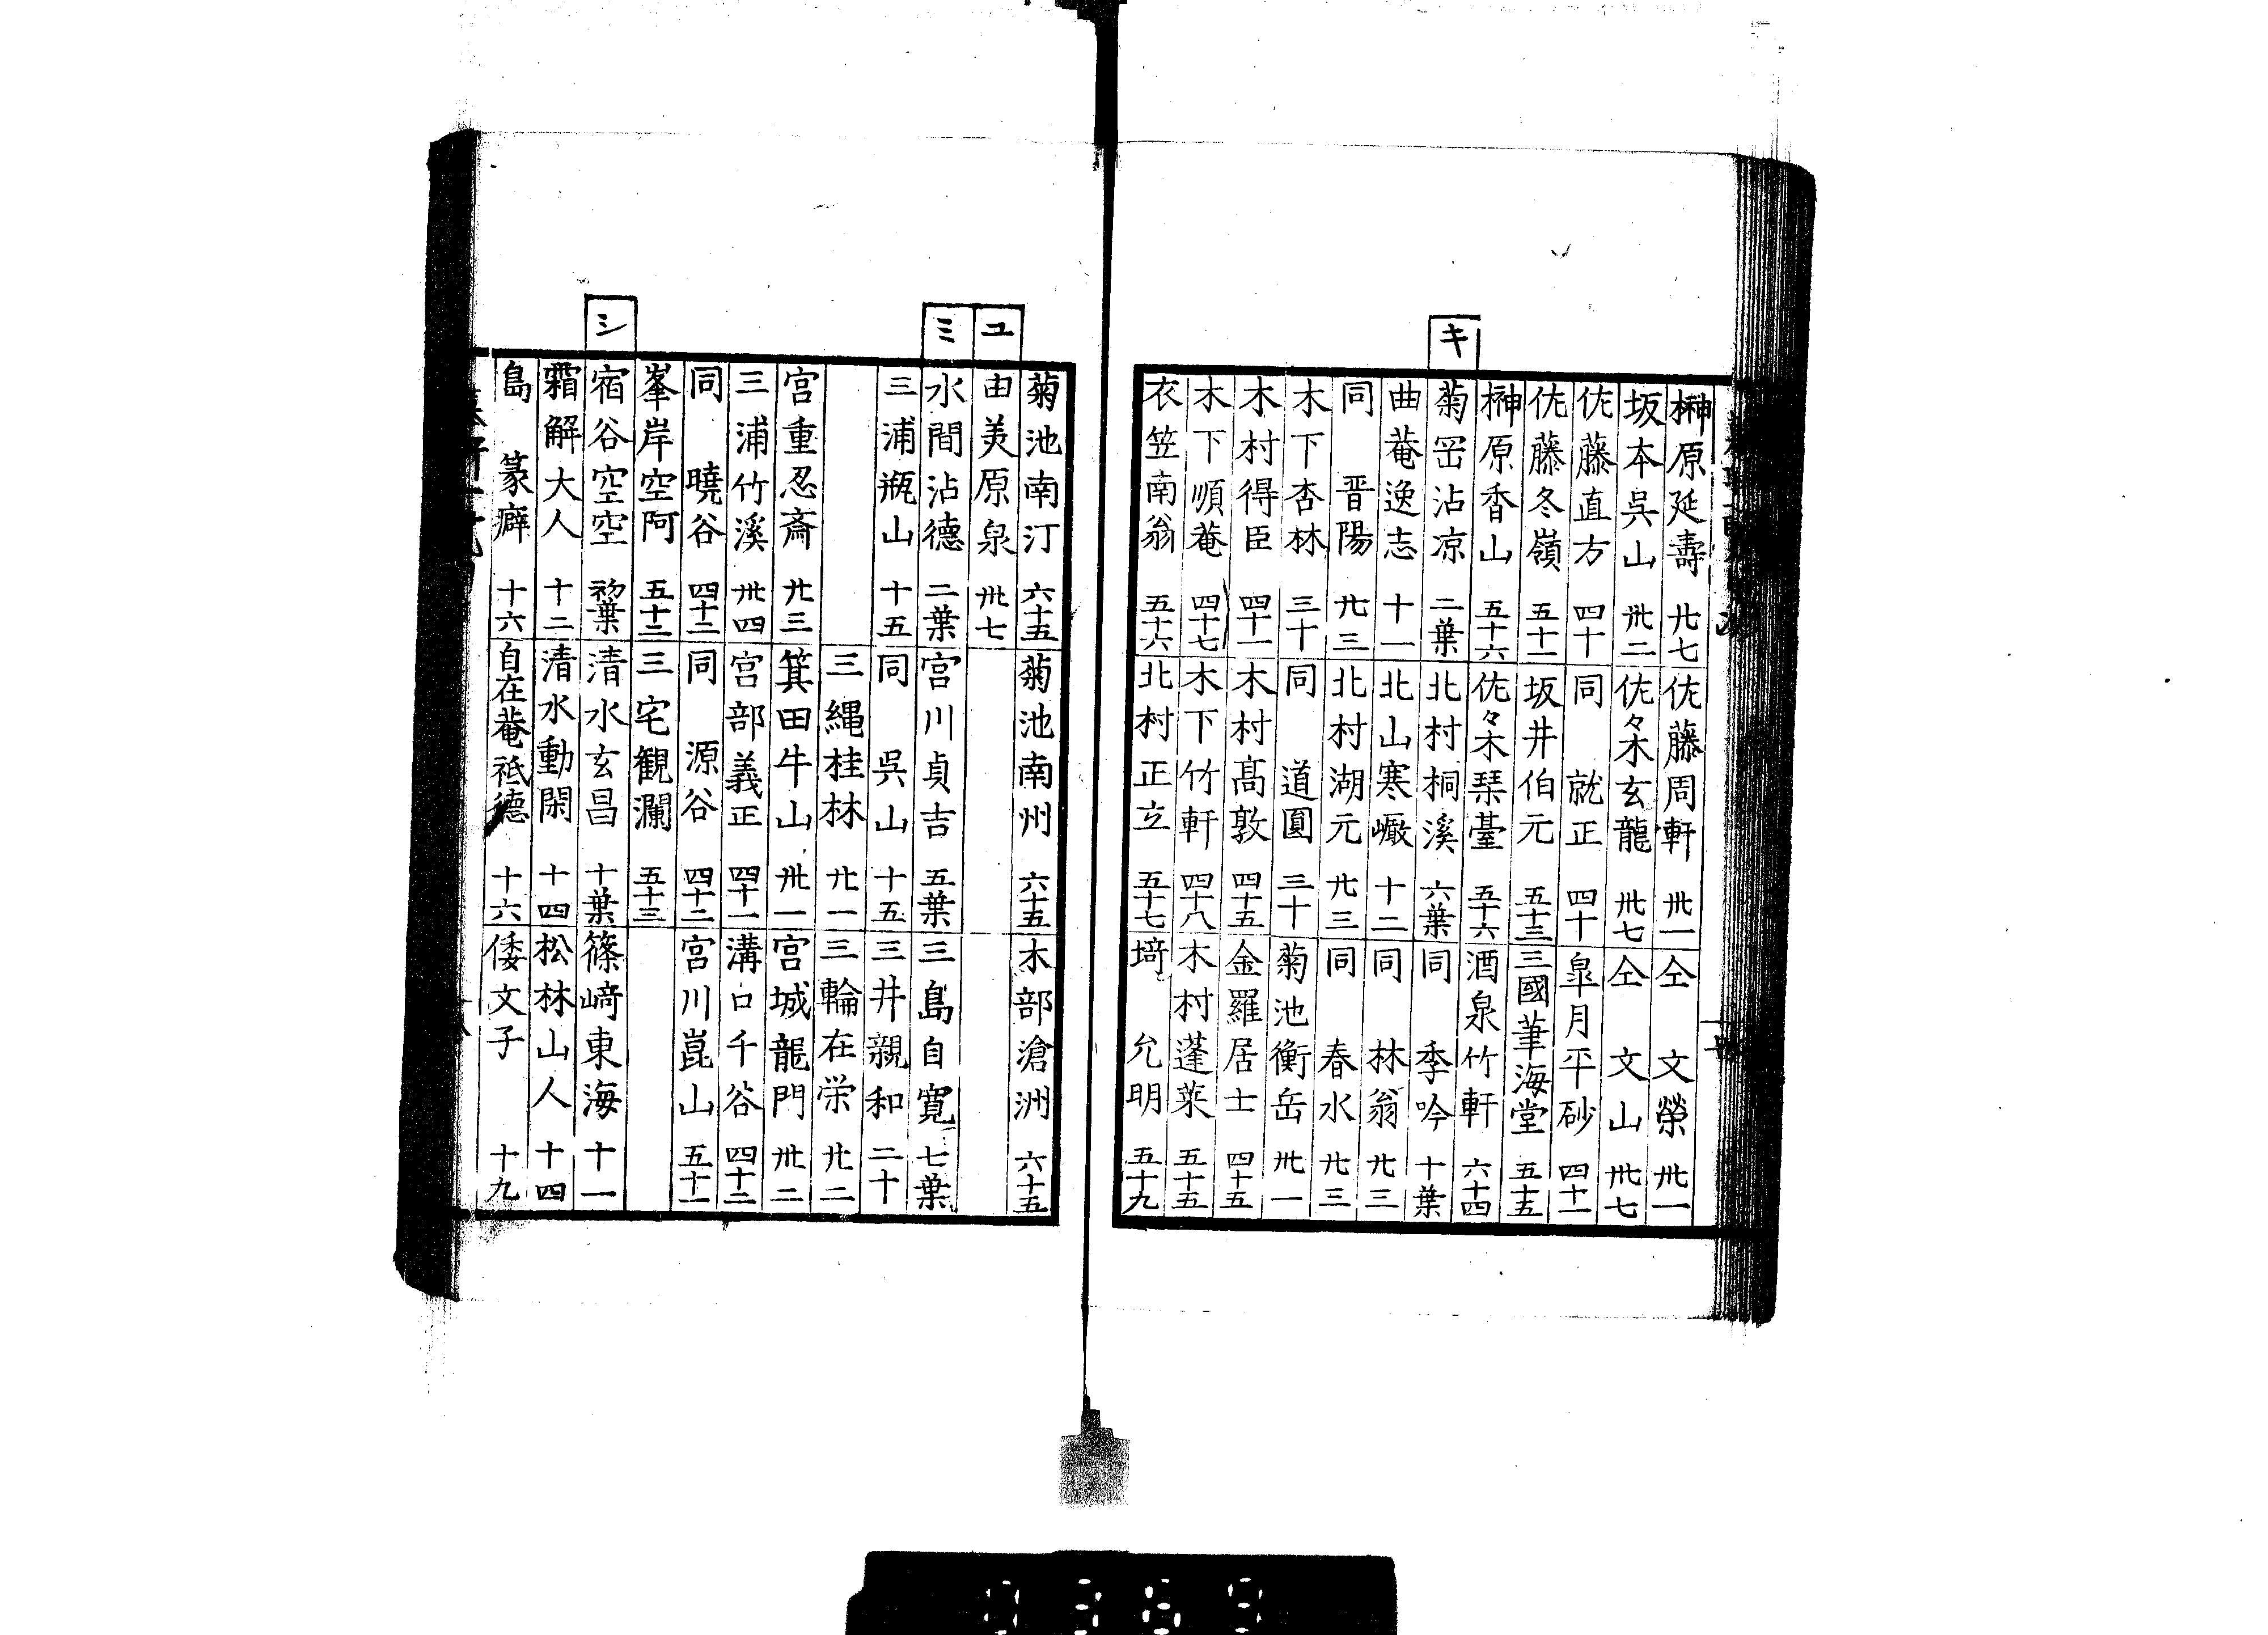 榊原延壽 廿七 佐藤周軒 卅一 仝 文榮 卅一
坂本呉山 卅二 佐々木玄龍 卅七 仝 文山 卅七
佐藤直方 四十 同 就正 四十 皐月平砂 四十一
佐藤冬嶺 五十二 坂井伯元 五十三 三國筆海堂 五十五
榊原香山 五十六 佐々木琹臺 五十六 酒泉竹軒 六十四
キ
菊罡沾凉 二葉 北村桐溪 六葉 同 季吟 十葉
曲菴逸志 十一 北山寒巗 十二 同 林翁 廿三
同 晋陽 廿三 北村湖元 廿三 同 春水 廿三
木下杏林 三十 同 道圓 三十 菊池衡岳 卅一
木村得臣 四十一 木村髙敦 四十五 金羅居士 四十五
木下順菴 四十七 木下竹軒 四十八 木村蓬莱 五十五
衣笠南翁 五十六 北村正立 五十七 埼 允明 五十九
菊池南汀 六十五 菊池南州 六十五 木部滄洲 六十五
ユ
由美原泉 卅七
ミ
水間沾德 二葉 宮川貞吉 五葉 三島自寛 七葉
三浦瓶山 十五 同 呉山 十五 三井親和 二十
三縄桂林 廿一 三輪在栄 廿二
宮重忍斎 廿三 箕田牛山 卅一 宮城龍門 卅二
三浦竹溪 卅四 宮部義正 四十一 溝口千谷 四十二
同 曉谷 四十二 同 源谷 四十二 宮川崑山 五十一
峯岸空阿 五十二 三宅観瀾 五十三
シ
宿谷空空 初葉 清水玄昌 十葉 篠﨑東海 十一
霜解大人 十二 清水動閑 十四 松林山人 十四
島 篆癖 十六 自在菴祗德 十六 倭文子 十九